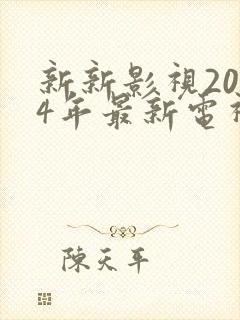 新新影視20
4年最新電視
陳天平